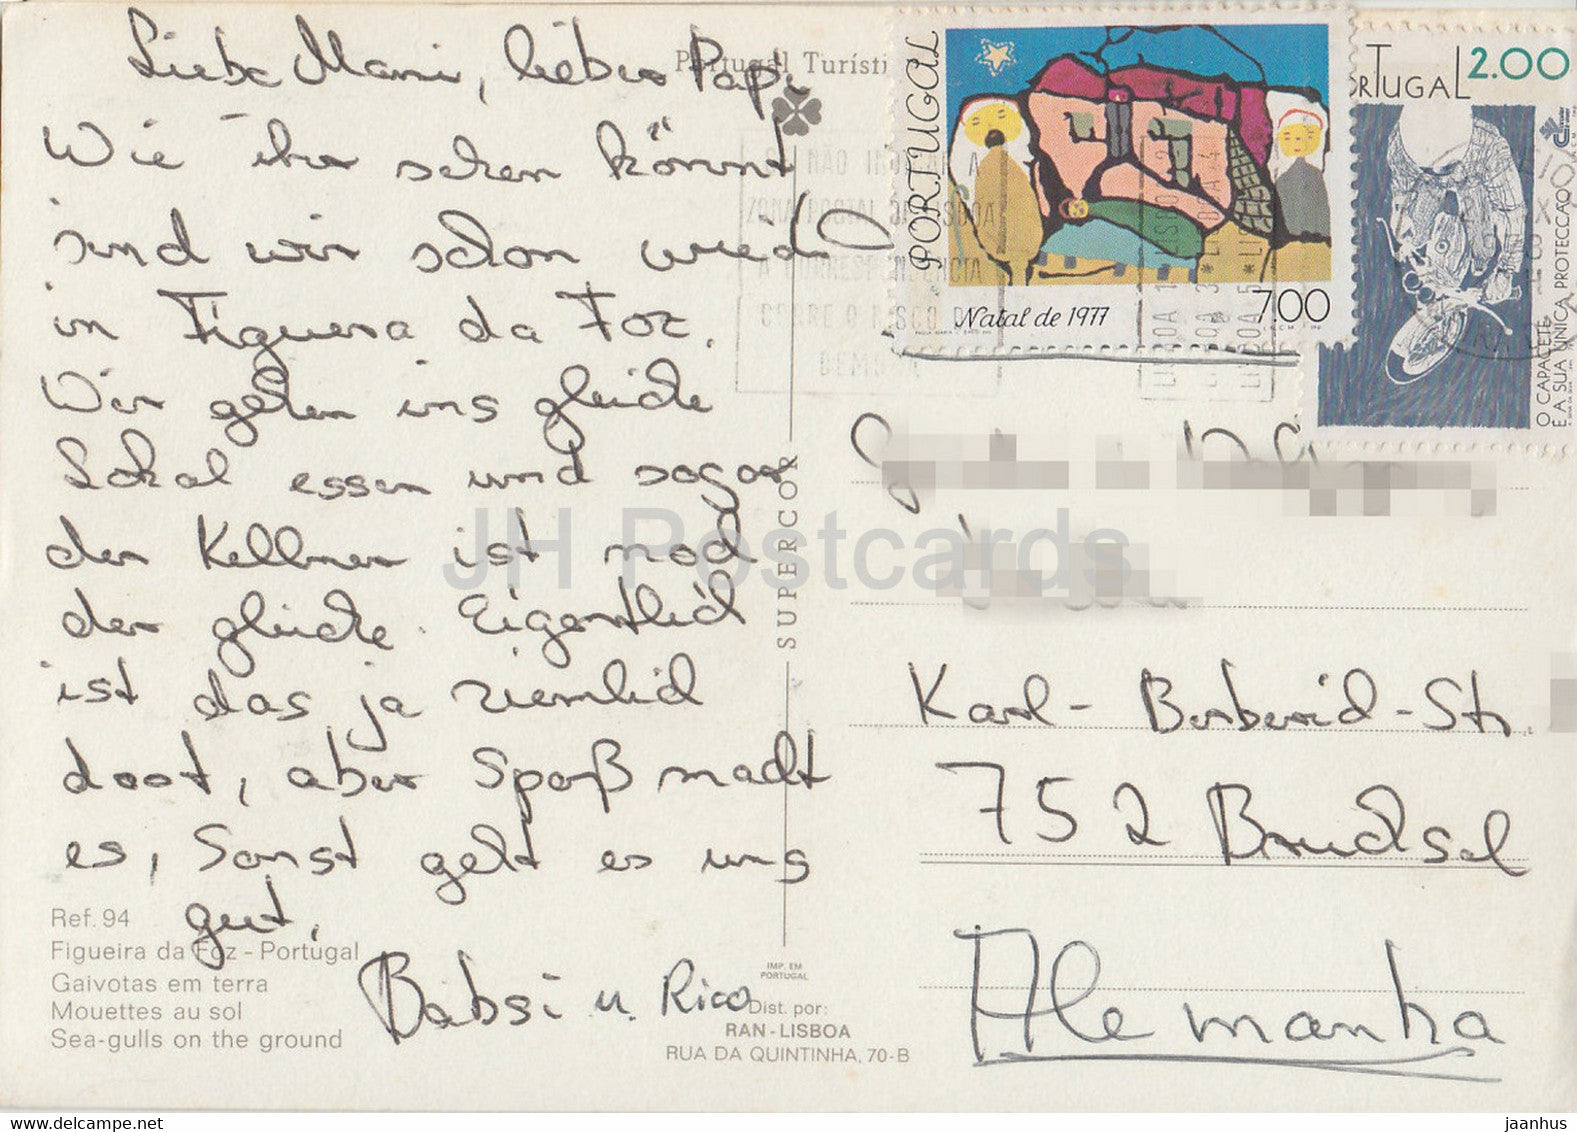 Liebe Mami, lieber Papi
Wie ihr sehen könnt
sind wir schon wieder
in Figuera da Foz.
Wir gehen ins gleiche
Lokal essen und sogar
der Kellner ist noch
der gleiche. Eigentlich
ist das ja ziemlich
doof, aber Spaß macht
es, Sonst geht es uns
gut.
Babsi u. Rico
Ref. 94
Figueira da Foz - Portugal
Gaivotas em terra
Mouettes au sol
Sea-gulls on the ground
Portugal Turísti
SUPERCOR
IMP. EM
PORTUGAL
Dist. por:
RAN-LISBOA
RUA DA QUINTINHA, 70-B
PORTUGAL
Natal de 1977
7.00
PORTUGAL 2.00
O CAPACETE
É A SUA ÚNICA PROTECÇÃO
NÃO
A
ZONA POSTAL DE LISBOA
A CORRESPONDENCIA
Karl-Berberich-Str.
752 Bruchsal
Alemanha
JH Postcards
jaanhus
www.delcampe.net